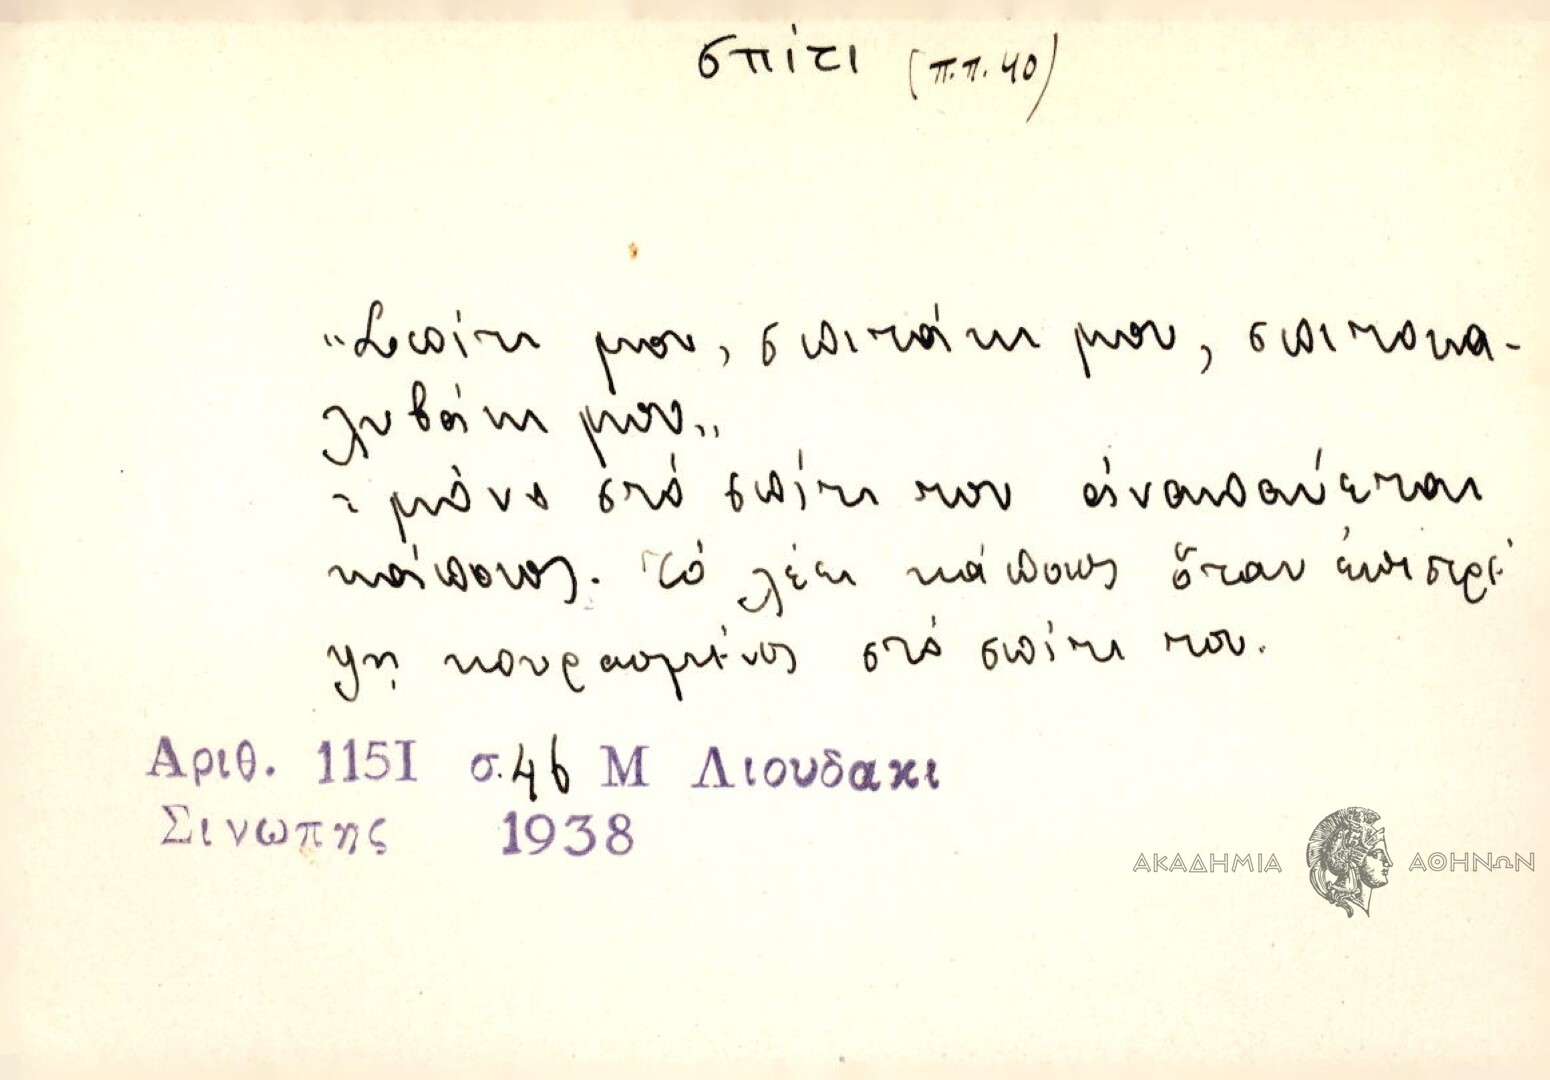 σπίτι (π.π. 40)
"Σπίτι μου, σπιτάκι μου, σπιτοκα-
λυβάκι μου"
: μόνο στό σπίτι του ἀναπαύεται
κάποιος. Τό λέει κάποιος ὅταν ἐπιστρέ
ψῃ κουρασμένος στό σπίτι του.
Αριθ. 1151 σ. 46 Μ Λιουδακι
Σινωπης 1938
ΑΚΑΔΗΜΙΑ ΑΘΗΝΩΝ